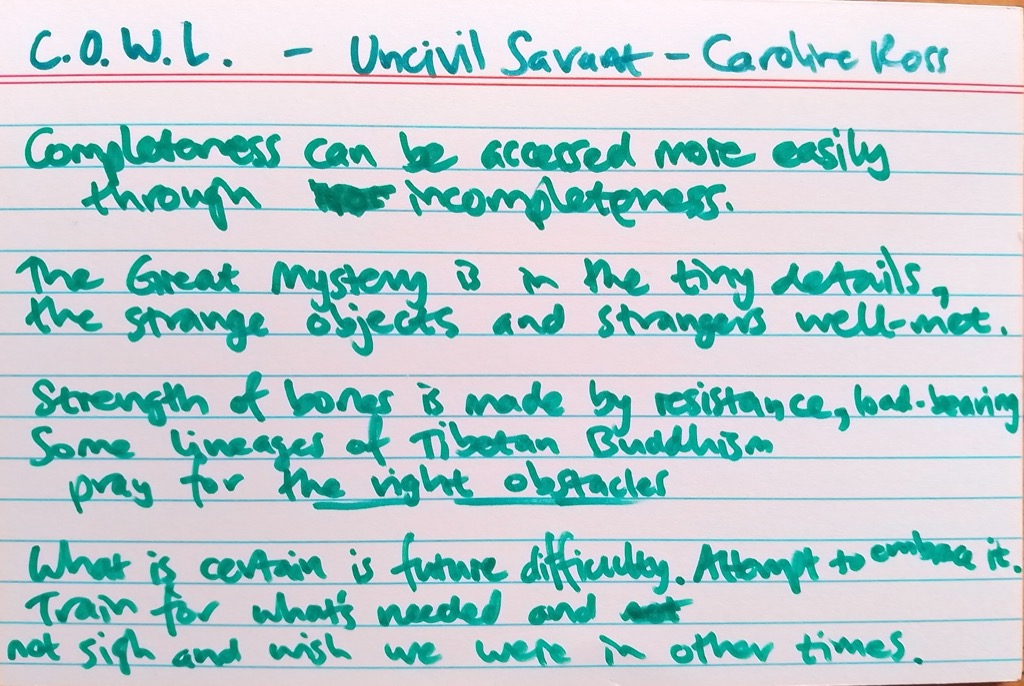 C.O.W.L. - Uncivil Savant - Caroline Ross
Completeness can be accessed more easily
through incompleteness.
The Great Mystery is in the tiny details,
the strange objects and strangers well-met.
Strength of bones is made by resistance, load-bearing
Some lineages of Tibetan Buddhism
pray for the right obstacles
What is certain is future difficulty. Attempt to embrace it.
Train for what's needed and
not sigh and wish we were in other times.